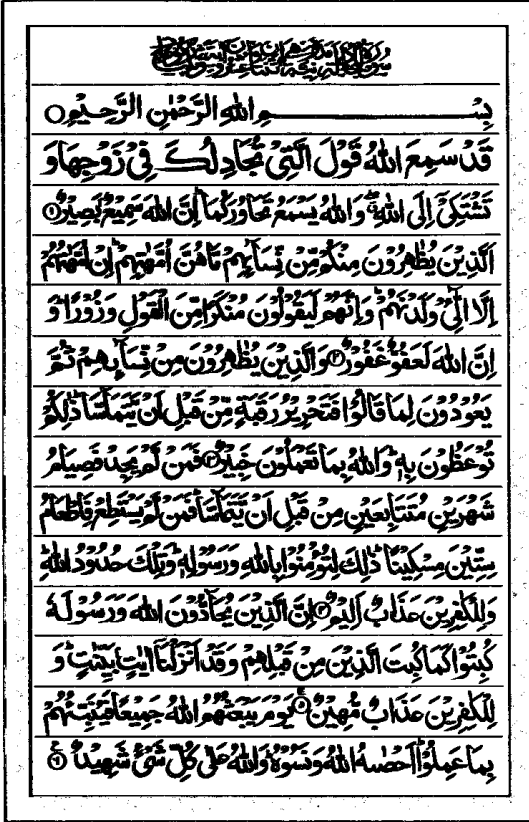 بِسْمِ اللهِ الرَّحْمٰنِ الرَّحِيْمِ ○
قَدْ سَمِعَ اللهُ قَوْلَ الَّتِيْ تُجَادِلُكَ فِيْ زَوْجِهَا وَ
تَشْتَكِيْٓ اِلَى اللهِ ۖ وَاللهُ يَسْمَعُ تَحَاوُرَكُمَا ؕ اِنَّ اللهَ سَمِيْعٌۢ بَصِيْرٌ ﴿۱﴾
اَلَّذِيْنَ يُظٰهِرُوْنَ مِنْكُمْ مِّنْ نِّسَآئِهِمْ مَّا هُنَّ اُمَّهٰتِهِمْ ؕ اِنْ اُمَّهٰتُهُمْ
اِلَّا الّٰٓـِٔيْ وَلَدْنَهُمْ ؕ وَاِنَّهُمْ لَيَقُوْلُوْنَ مُنْكَرًا مِّنَ الْقَوْلِ وَزُوْرًا ؕ وَ
اِنَّ اللهَ لَعَفُوٌّ غَفُوْرٌ ﴿۲﴾ وَالَّذِيْنَ يُظٰهِرُوْنَ مِنْ نِّسَآئِهِمْ ثُمَّ
يَعُوْدُوْنَ لِمَا قَالُوْا فَتَحْرِيْرُ رَقَبَةٍ مِّنْ قَبْلِ اَنْ يَّتَمَآسَّا ؕ ذٰلِكُمْ
تُوْعَظُوْنَ بِهٖ ؕ وَاللهُ بِمَا تَعْمَلُوْنَ خَبِيْرٌ ﴿۳﴾ فَمَنْ لَّمْ يَجِدْ فَصِيَامُ
شَهْرَيْنِ مُتَتَابِعَيْنِ مِنْ قَبْلِ اَنْ يَّتَمَآسَّا ۚ فَمَنْ لَّمْ يَسْتَطِعْ فَاِطْعَامُ
سِتِّيْنَ مِسْكِيْنًا ؕ ذٰلِكَ لِتُؤْمِنُوْا بِاللهِ وَرَسُوْلِهٖ ؕ وَتِلْكَ حُدُوْدُ اللهِ ؕ
وَلِلْكٰفِرِيْنَ عَذَابٌ اَلِيْمٌ ﴿۴﴾ اِنَّ الَّذِيْنَ يُحَآدُّوْنَ اللهَ وَرَسُوْلَهٗ
كُبِتُوْا كَمَا كُبِتَ الَّذِيْنَ مِنْ قَبْلِهِمْ وَقَدْ اَنْزَلْنَآ اٰيٰتٍۭ بَيِّنٰتٍ ؕ وَ
لِلْكٰفِرِيْنَ عَذَابٌ مُّهِيْنٌ ﴿۵﴾ يَوْمَ يَبْعَثُهُمُ اللهُ جَمِيْعًا فَيُنَبِّئُهُمْ
بِمَا عَمِلُوْا ؕ اَحْصٰىهُ اللهُ وَنَسُوْهُ ؕ وَاللهُ عَلٰى كُلِّ شَيْءٍ شَهِيْدٌ ﴿۶﴾